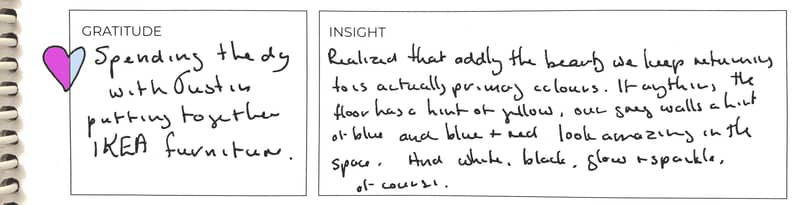 GRATITUDE
Spending the dy
with Justin
putting together
IKEA furniture.
INSIGHT
Realized that oddly the beauty we keep returning
to is actually primary colours. If anything, the
floor has a hint of yellow, our grey walls a hint
of blue and blue + red look amazing in the
space. And white, black, glow + sparkle,
of course.